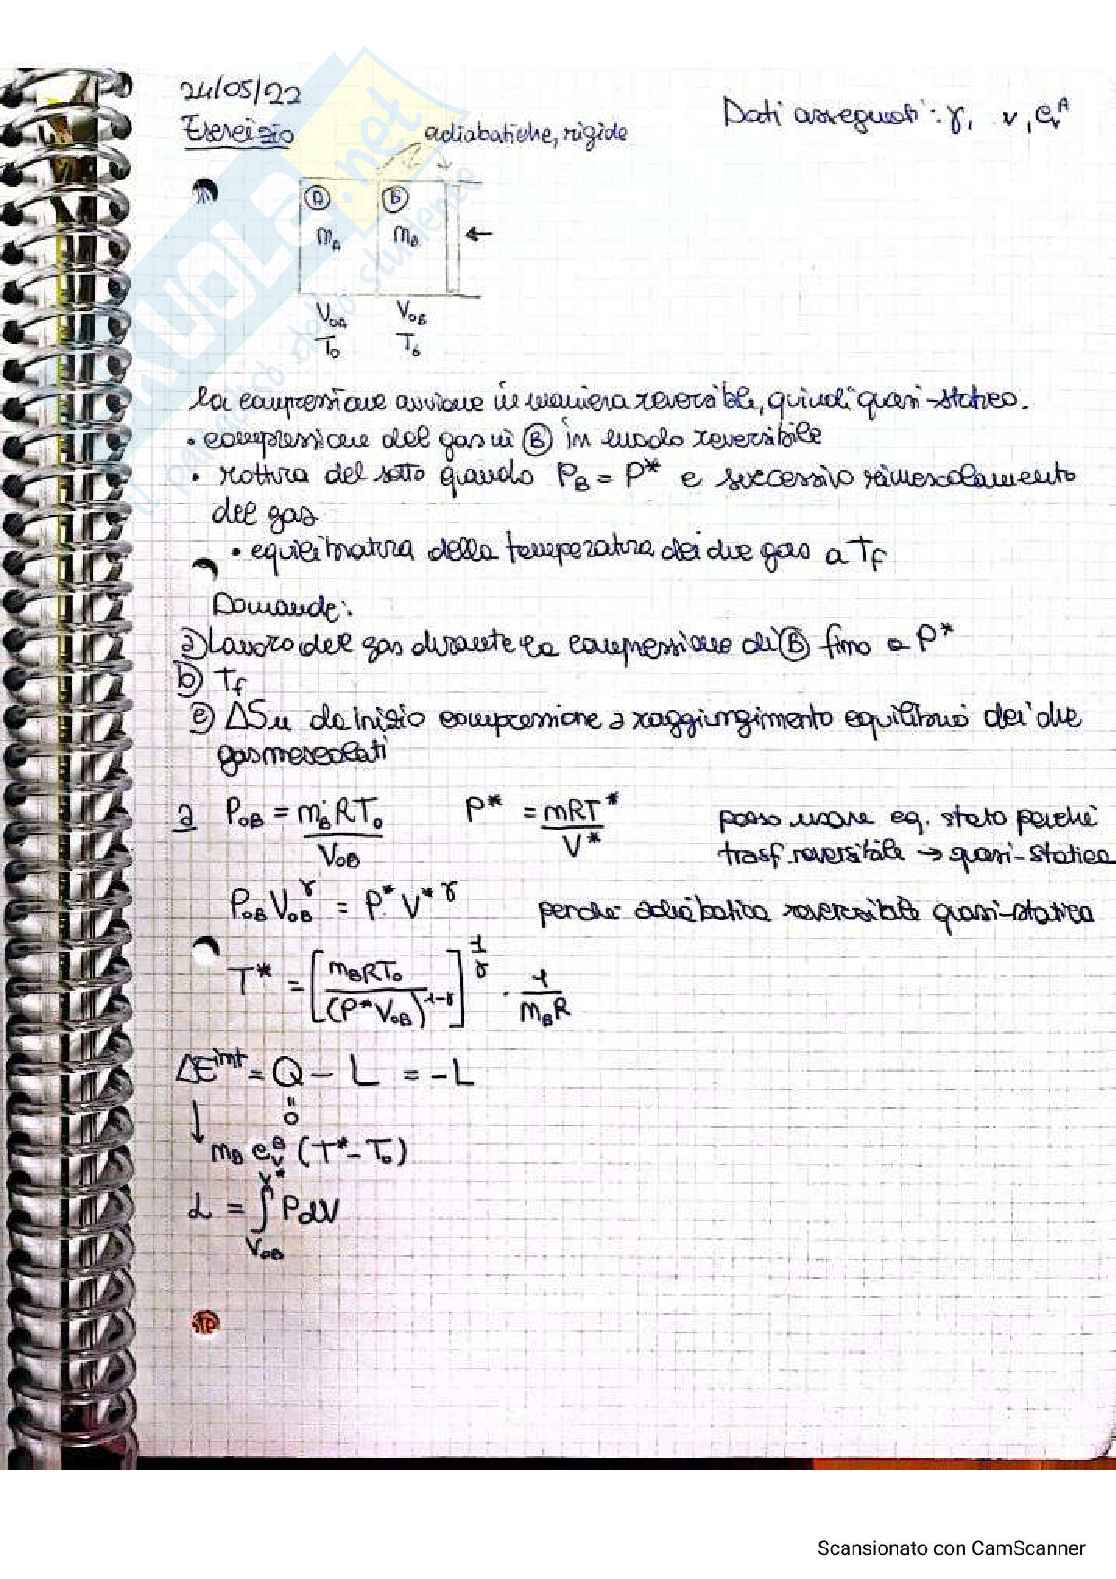 24/05/22
Esercizio
adiabatiche, rigide
Dati assegnati: γ, v, c_v^A
A B
m_A m_B
V_0A V_0B
T_0 T_0
la compressione avviene in maniera reversibile, quindi quasi-statica.
• compressione del gas in B in modo reversibile
• rottura del setto quando P_B = P* e successivo rimescolamento
del gas
• equilibratura della temperatura dei due gas a T_f
Domande:
a) Lavoro del gas durante la compressione di B fino a P*
b) T_f
c) ΔSu da inizio compressione a raggiungimento equilibrio dei due
gas mescolati
a P_0B = m_B R T_0 / V_0B P* = mRT* / V* posso usare eq. stato perché
trasf. reversibile → quasi-statica
P_0B V_0B^γ = P* V*^γ perché adiabatica reversibile quasi-statica
T* = [m_B R T_0 / (P* V_0B)^1-γ]^1/γ · 1 / m_B R
ΔE^int = Q - L = -L
↓ " 0
m_B c_v^B (T* - T_0)
L = ∫_V_0B^V* P dV
Scansionato con CamScanner